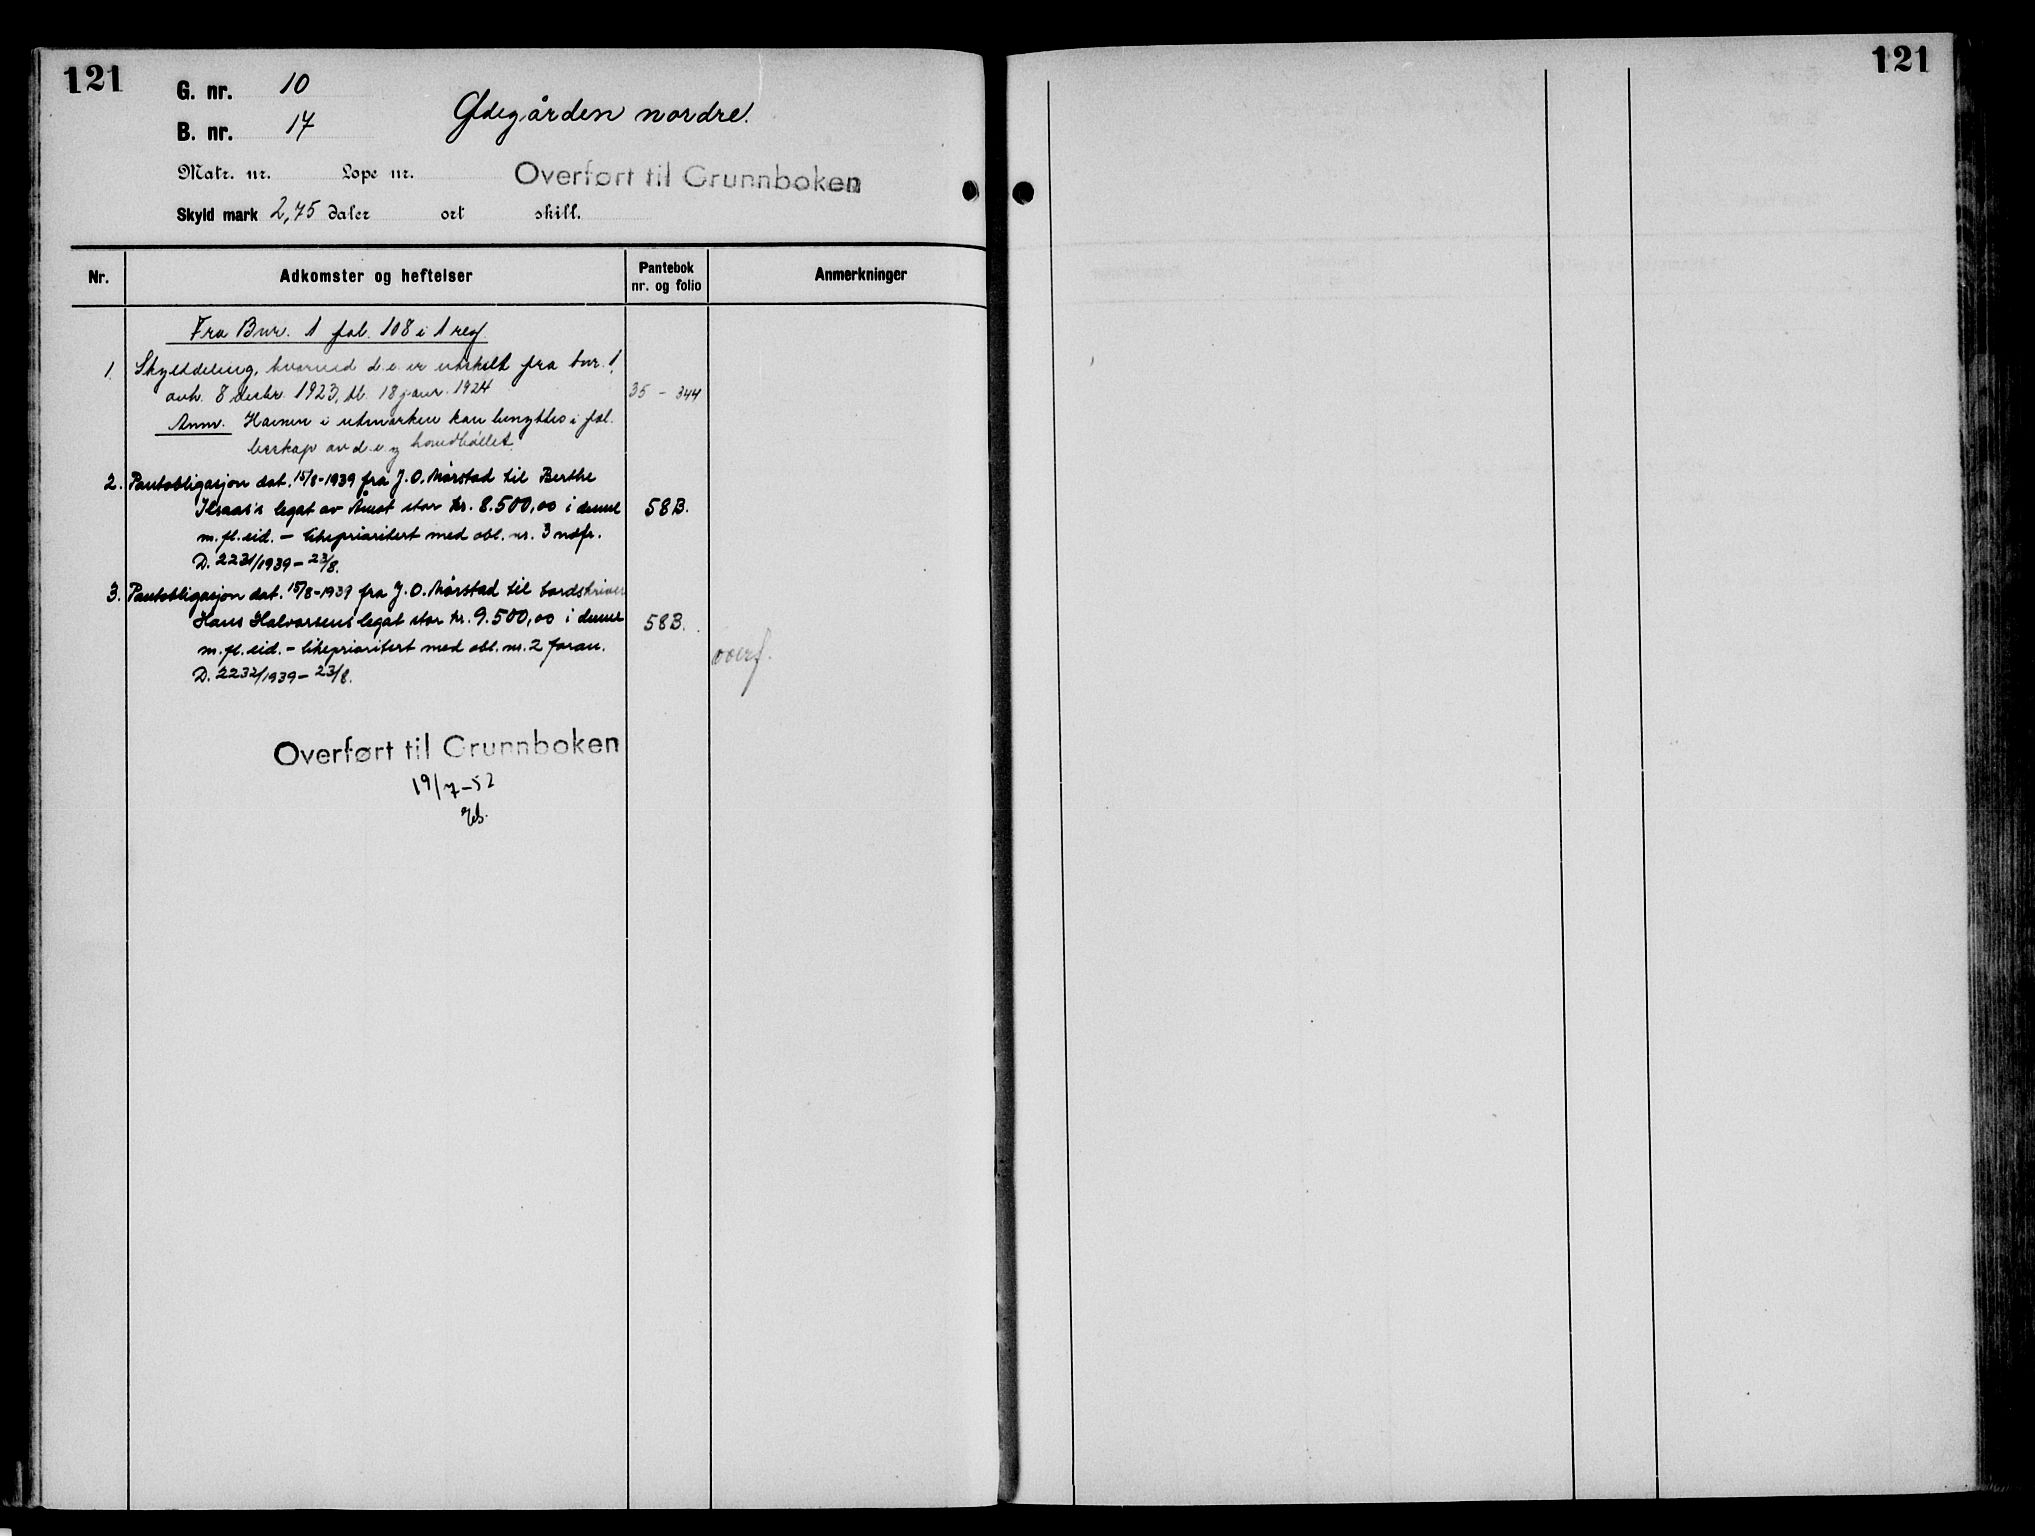 121
G. nr. 10
B. nr. 17
Ødegården nordre.
Matr. nr. Lope nr.
Overført til Grunnboken
Skyld mark 2,75 daler ort skill.
Nr. Adkomster og heftelser Pantebok nr. og folio Anmerkninger
Fra Bnr. 1 fol. 108 i 1 reg.
1. Skylddeling, hvorved d.e. er utskilt fra bnr. 1,
avh. 8 desbr. 1923, tl. 18 janr. 1924 35 - 344
Anm. Havnen i utmarken kan benyttes i fæl-
lesskap av d.e. og hovedbølet.
2. Pantobligasjon dat. 15/8-1939 fra J. O. Mårstad til Berthe
legat av Åmot stor kr. 8.500,00 i denne 58B.
m. fl. eid. - likeprioritert med obl. nr. 3 ndfr.
D. 2231/1939 - 23/8.
3. Pantobligasjon dat. 15/8-1939 fra J. O. Mårstad til sordskriver
Hans Halvorsens legat stor kr. 9.500,00 i denne 58B.
m. fl. eid. - likeprioritert med obl. nr. 2 foran. overf.
D. 2232/1939 - 23/8.
Overført til Grunnboken
19/7-52
121